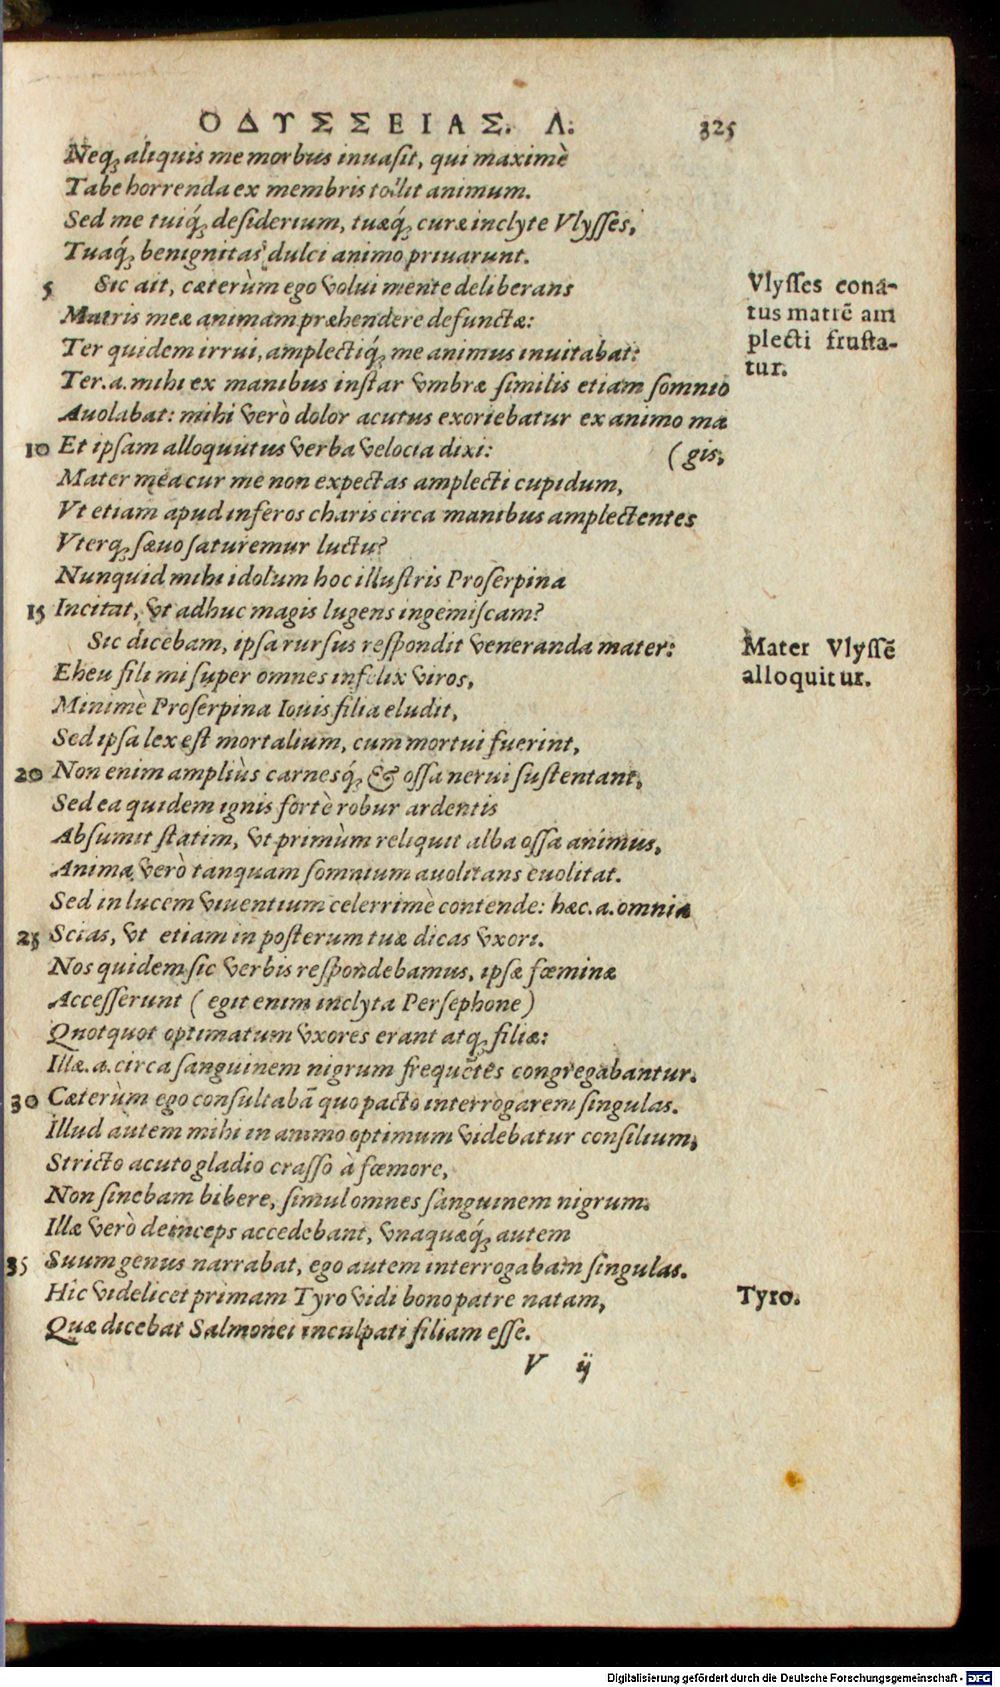 ΟΔΥΣΣΕΙΑΣ. Λ. 325
Neq; aliquis me morbus inuasit, qui maximè
Tabe horrenda ex membris tollit animum.
Sed me tuiq́; desiderium, tuæq́; curæ inclyte Vlysses,
Tuaq́; benignitas dulci animo priuarunt.
5 Sic ait, cæterùm ego volui mente deliberans
Matris meæ animam præhendere defunctæ:
Ter quidem irrui, amplectiq́; me animus inuitabat:
Ter. a. mihi ex manibus instar vmbræ similis etiam somnio
Auolabat: mihi verò dolor acutus exoriebatur ex animo ma
10 Et ipsam alloquutus verba velocia dixi: (gis,
Mater mea cur me non expectas amplecti cupidum,
Vt etiam apud inferos charis circa manibus amplectentes
Vterq; sæuo saturemur luctu?
Nunquid mihi idolum hoc illustris Proserpina
15 Incitat, vt adhuc magis lugens ingemiscam?
Sic dicebam, ipsa rursus respondit veneranda mater:
Eheu fili mi super omnes infelix viros,
Minimè Proserpina Iouis filia eludit,
Sed ipsa lex est mortalium, cum mortui fuerint,
20 Non enim ampliùs carnesq́; & ossa nerui sustentant,
Sed ea quidem ignis fortè robur ardentis
Absumit statim, vt primùm reliquit alba ossa animus,
Anima verò tanquam somnium auolitans euolitat.
Sed in lucem viuentium celerrimè contende: hæc. a. omnia
25 Scias, vt etiam in posterum tuæ dicas vxori.
Nos quidem sic verbis respondebamus, ipsæ fœminæ
Accesserunt (egit enim inclyta Persephone)
Quotquot optimatum vxores erant atq; filiæ:
Illæ. a. circa sanguinem nigrum frequẽtes congregabantur.
30 Cæterùm ego consultabã quo pacto interrogarem singulas.
Illud autem mihi in animo optimum videbatur consilium,
Stricto acuto gladio crasso à fœmore,
Non sinebam bibere, simul omnes sanguinem nigrum.
Illæ verò deinceps accedebant, vnaquæq́; autem
35 Suum genus narrabat, ego autem interrogabam singulas.
Hic videlicet primam Tyro vidi bono patre natam,
Quæ dicebat Salmonei inculpati filiam esse.
V ij
Vlysses conã-
tus matrẽ am
plecti frusta-
tur.
Mater Vlyssẽ
alloquitur.
Tyro.
Digitalisierung gefördert durch die Deutsche Forschungsgemeinschaft - DFG